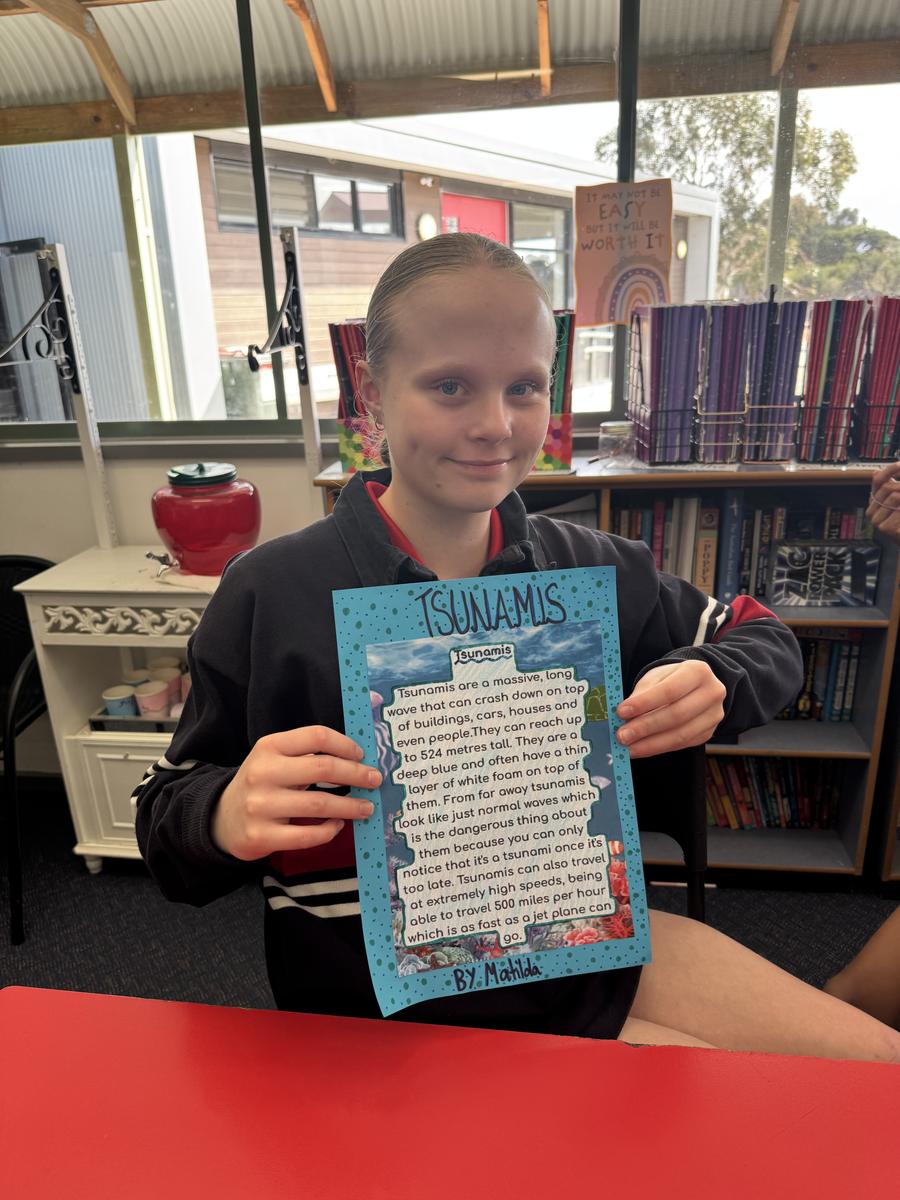 IT MAY NOT BE
EASY
BUT IT WILL BE
WORTH IT
POPPY
FLOWER
TSUNAMIS
Tsunamis
Tsunamis are a massive, long
wave that can crash down on top
of buildings, cars, houses and
even people.They can reach up
to 524 metres tall. They are a
deep blue and often have a thin
layer of white foam on top of
them. From far away tsunamis
look like just normal waves which
is the dangerous thing about
them because you can only
notice that it's a tsunami once it's
too late. Tsunamis can also travel
at extremely high speeds, being
able to travel 500 miles per hour
which is as fast as a jet plane can
go.
BY Matilda